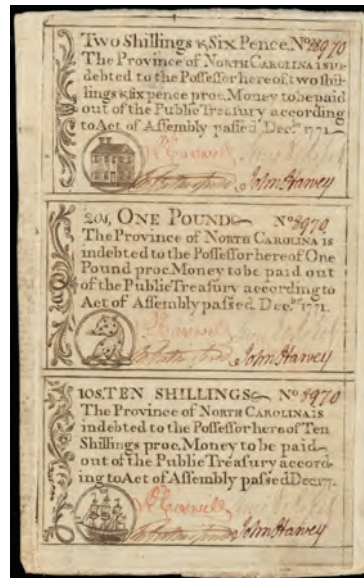 Two Shillings & Six Pence. No 28970
The Province of NORTH CAROLINA is in-
debted to the Possessor hereof, two shil-
lings & six pence proc. Money to be paid
out of the Public Treasury according
to Act of Assembly passed Decr. 1771.
R Caswell
John Harvey
20s, ONE POUND No 8970
The Province of NORTH CAROLINA is
indebted to the Possessor hereof One
Pound proc. Money to be paid out
of the Public Treasury according to
Act of Assembly passed Decbr 1771.
R Caswell
John Harvey
10s. TEN SHILLINGS No 8970
The Province of NORTH CAROLINA is
indebted to the Possessor hereof Ten
Shillings proc. Money to be paid
out of the Public Treasury accord-
ing to Act of Assembly passed Dec. 1771
R Caswell
John Harvey